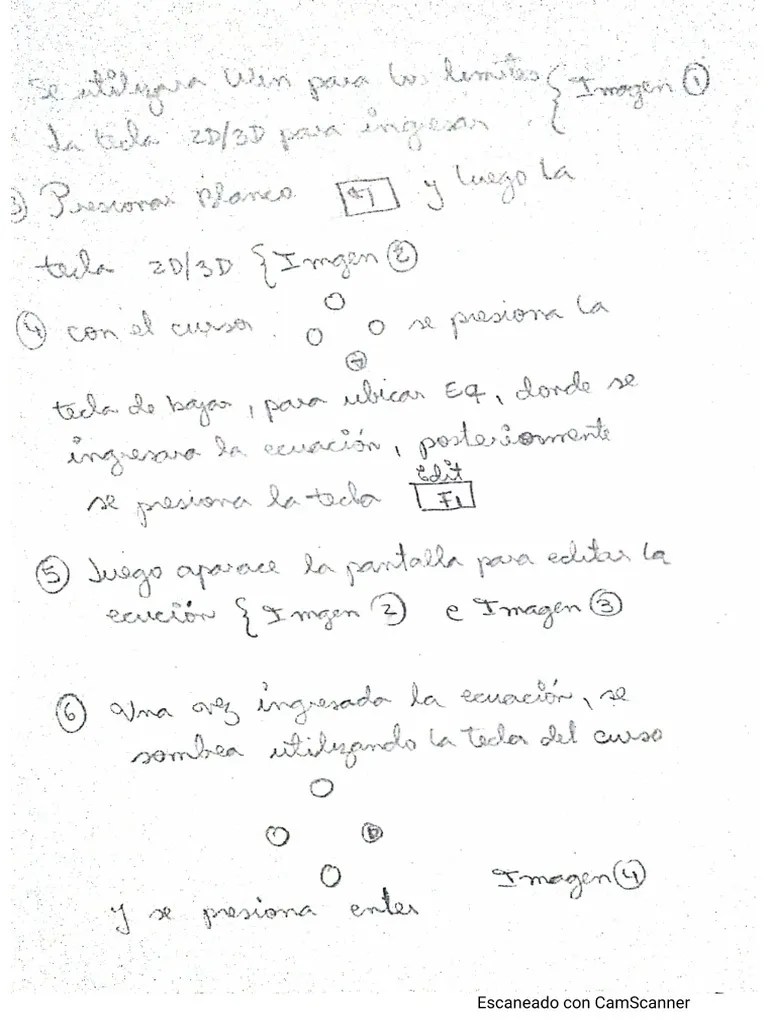 Se utilizara Win para los limites { Imagen ①
La tecla 2D/3D para ingresar
3) Presionar Blanco y luego la
tecla 2D/3D { Imgen ②
④ con el curso se presiona la
tecla de bajar, para ubicar EQ, donde se
ingresara la ecuación, posteriormente
Edit
se presiona la tecla F1
⑤ Luego aparace la pantalla para editar la
ecución { Imgen ② e Imagen ③
⑥ Una vez ingresada la ecuación, se
sombea utilizando la tecla del curso
Imagen ④
y se presiona enter
Escaneado con CamScanner